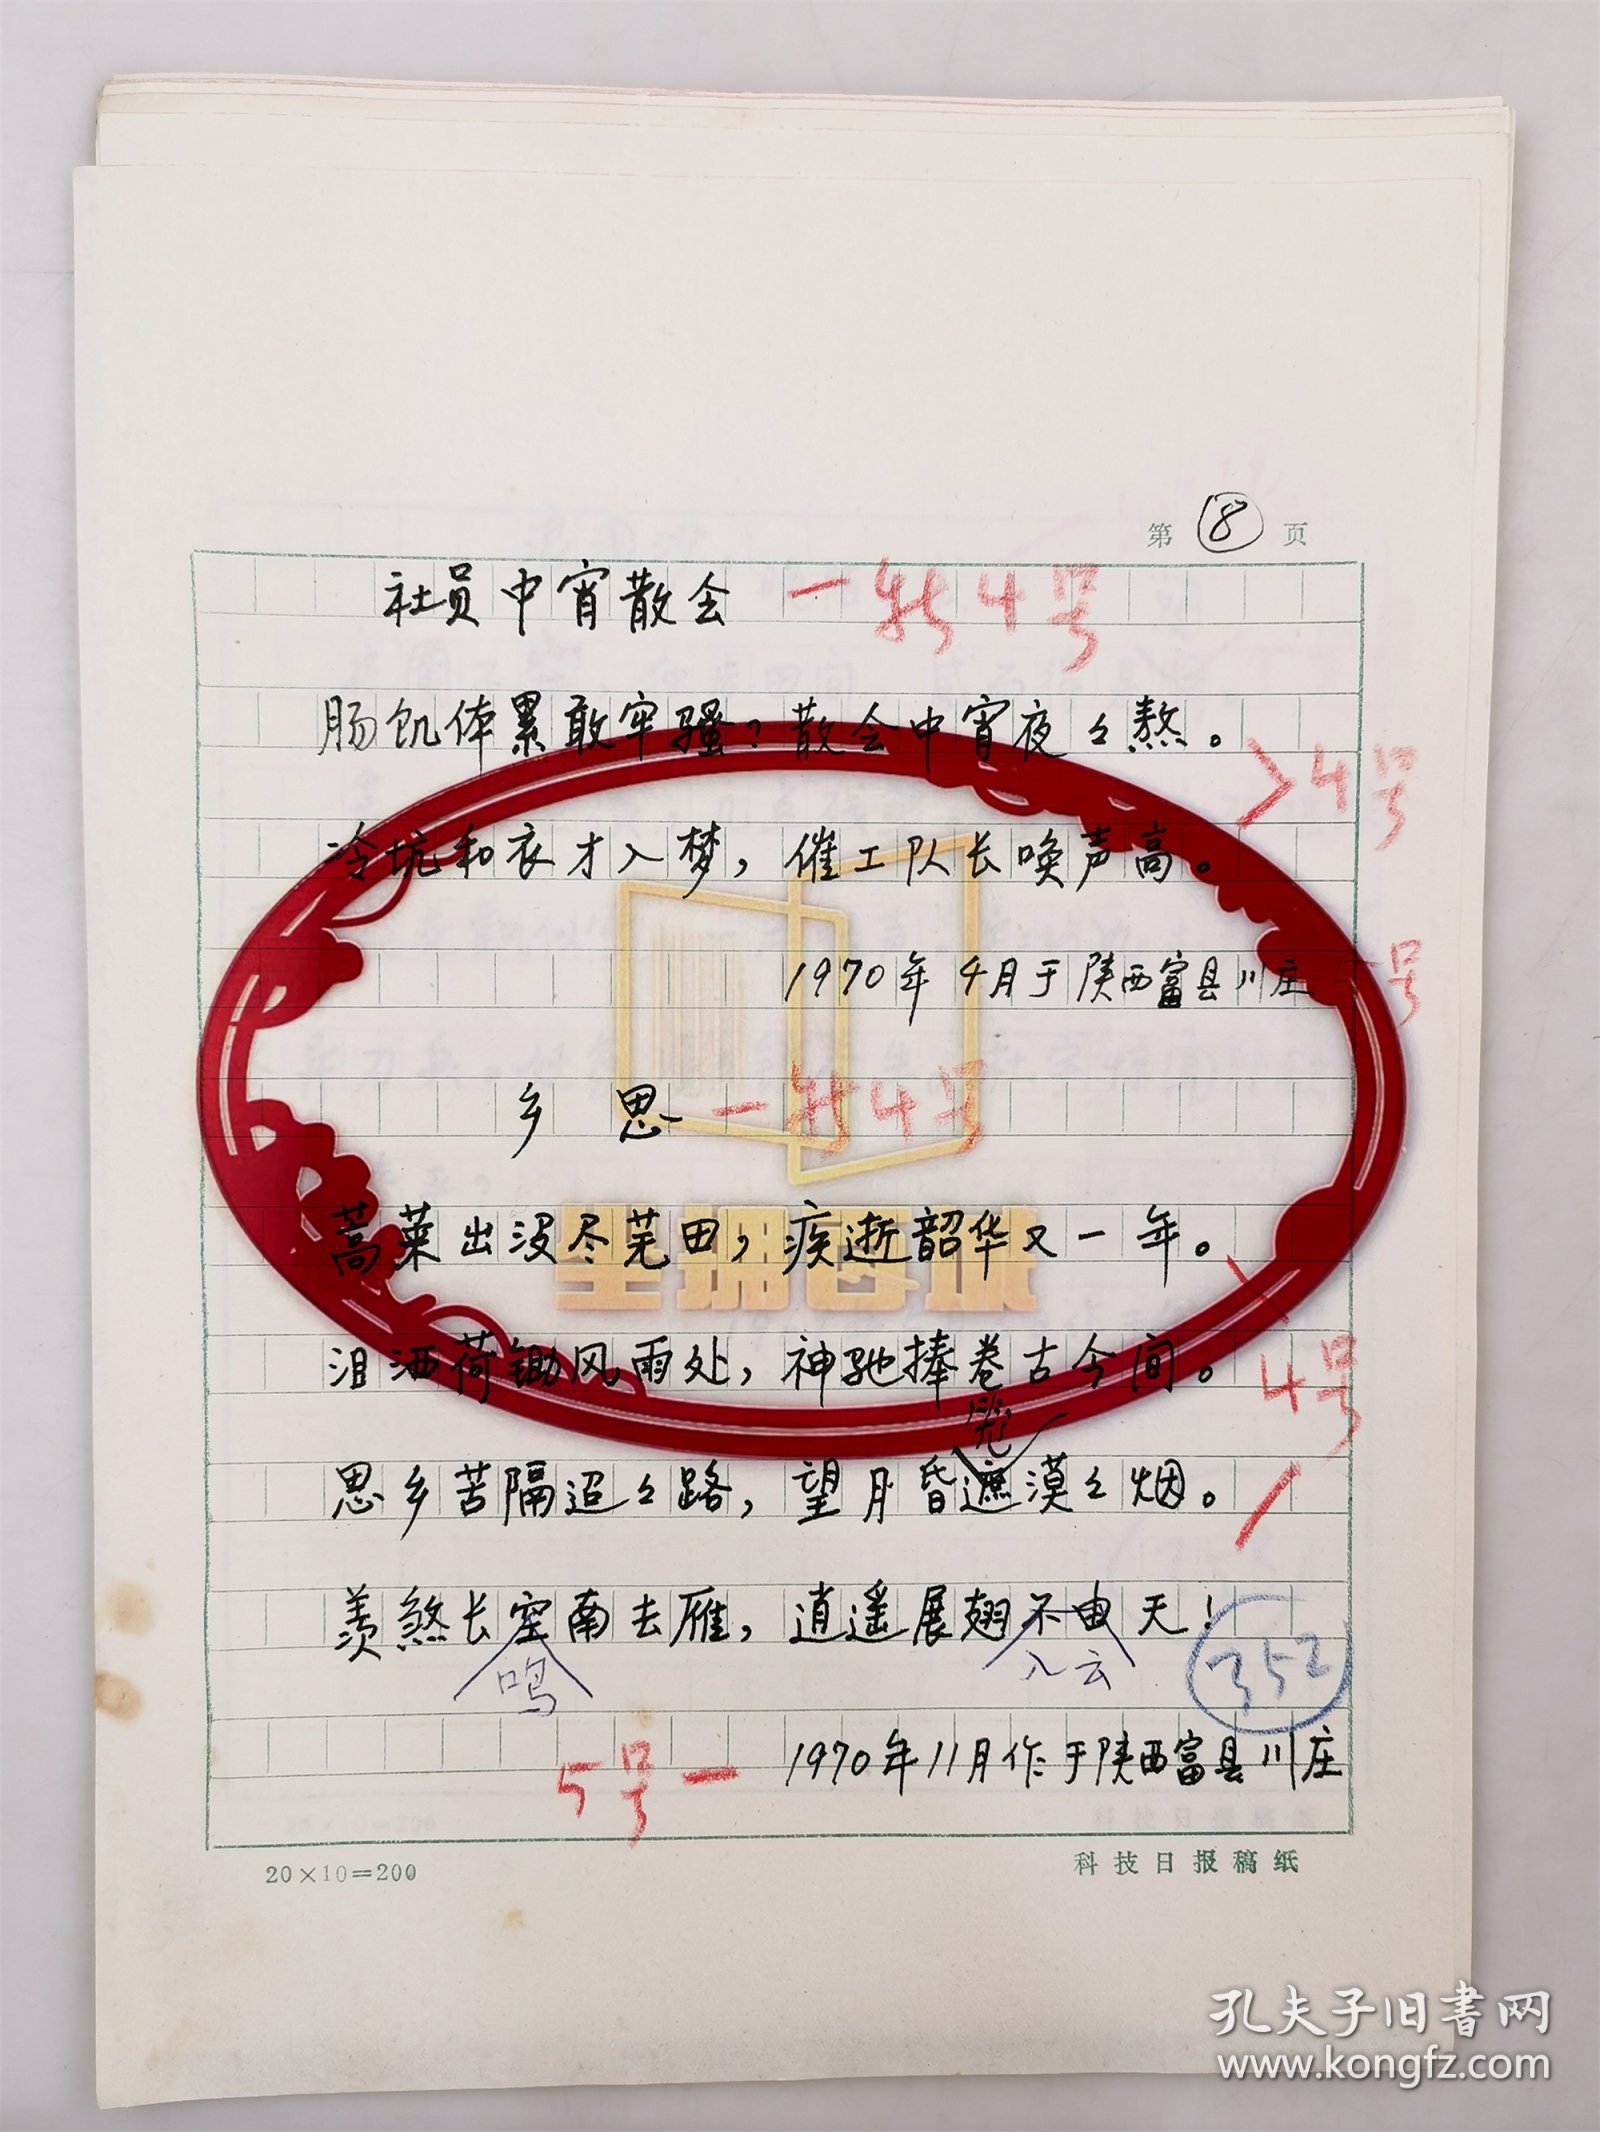 第 8 页
社员中宵散会 一 4号
肠饥体累敢牢骚？散会中宵夜々熬。
>4号
冷坑和衣才入梦，催工队长唤声高。
1970年4月于陕西富县川庄
号
乡 思 一 4号
蒿莱出没尽芜田，疾逝韶华又一年。
泪洒荷锄风雨处，神驰捧卷古今间。
4号
思乡苦隔迢々路，望月昏遮漠々烟。
羡煞长空南去雁，逍遥展翅不由天！
鸣
入云
352
5号一 1970年11月作于陕西富县川庄
20×10=200
科技日报稿纸
孔夫子旧书网
www.kongfz.com